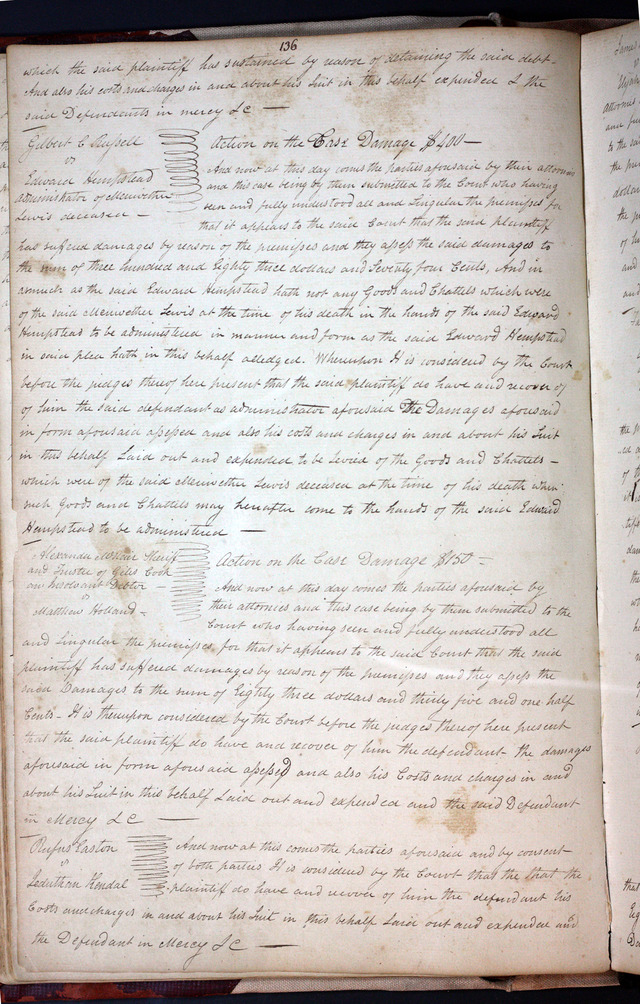 136
which the said plaintiff has sustained by reason of detaining the said debt-
And also his costs and charges in and about his Suit in this behalf expended & the
said Defendants in mercy &c —
Gilbert C Russell
vs
Edward Hempstead
administrator of Merriwether
Lewis deceased —
Action on the Case Damage $400—
And now at this day comes the parties aforesaid by their attornies
and this case being by them submitted to the Court who having
seen and fully understood all and Singular the premises for
that it appears to the said Court that the said plaintiff
has suffered damages by reason of the premises and they assess the said damages to
the sum of three hundred and Eighty three dollars and Seventy four Cents, And in
asmuch as the said Edward Hempstead hath not any Goods and Chattels which were
of the said Merriwether Lewis at the time of his death in the hands of the said Edward
Hempstead to be administered in manner and form as the said Edward Hempstead
in said plea hath in this behalf alledged. Whereupon It is considered by the Court
before the judges thereof here present that the said plaintiff do have and recover of
of him the said defendant as administrator aforesaid the Damages aforesaid
in form aforesaid assessed and also his costs and charges in and about his Suit
in this behalf Laid out and expended to be Levied of the Goods and Chattels —
which were of the said Merriwether Lewis deceased at the time of his death when
such Goods and Chattels may hereafter come to the hands of the said Edward
Hempstead to be administered —
Alexander McNair Sheriff
and Trustee of Giles Cook
an Insolvant Debtor —
vs
Matthew Holland -
Action on the Case Damage $150 —
And now at this day comes the parties aforesaid by
their attornies and this case being by them submitted to the
Court who having seen and fully understood all
and Singular the premises, for that it appears to the said Court that the said
plaintiff has suffered damages by reason of the premises and they assess the
said Damages to the sum of Eighty three dollars and thirty five and one half
Cents - It is thereupon considered by the Court before the judges thereof here present
that the said plaintiff do have and recover of him the defendant the damages
aforesaid in form aforesaid assessed and also his Costs and charges in and
about his Suit in this behalf Laid out and expended and the said Defendant
in Mercy &c —
Rufus Easton
vs
Jeduthan Kendal
And now at this comes the parties aforesaid and by consent
of both parties It is considered by the Court that the that the
plaintiff do have and recover of him the defendant his
Costs and charges in and about his Suit in this behalf Laid out and expended and
the Defendant in Mercy &c —